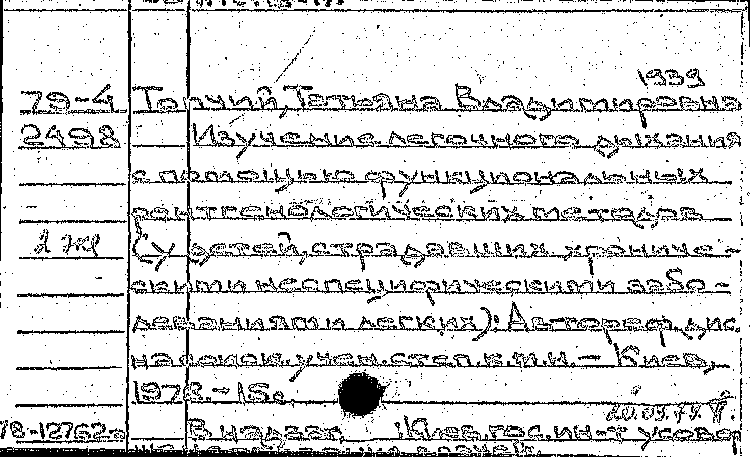 1939
79-4 Толчий, Татьяна Владимировна
2498 Изучение легочного дыхания
с помощью функциональных
рентгенологических методов
2 экз (у детей, страдавших хрониче-
скими неспецифическими забо-
леваниями легких): Автореф. дис.
на соиск. учен. степ. к.м.н. - Киев,
1978. - 15с.
20.09.79
78-12762а В надзаг.: Киев. гос. ин-т усовер
врачей.